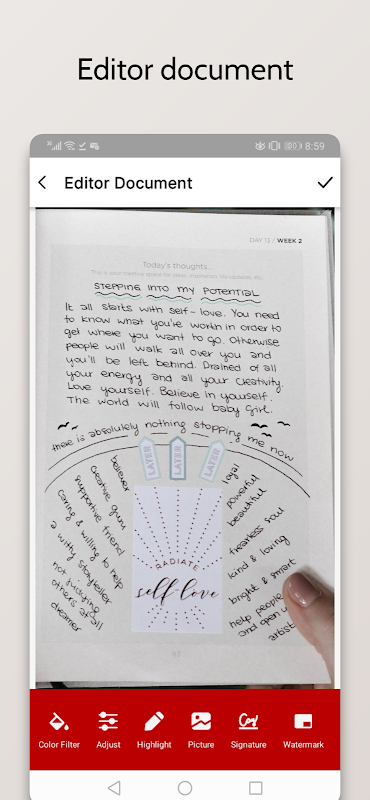 Editor document
8:59
Editor Document
DAY 13 / WEEK 2
Today's thoughts...
STEPPING INTO MY POTENTIAL
It all starts with self-love. You need
to know what you're worth in order to
get where you want to go. Otherwise
people will walk all over you and
you'll be left behind. Drained of all
your energy and all your creativity.
Love yourself. Believe in yourself.
The world will follow baby girl.
there is absolutely nothing stopping me now
LATER
LATER
LATER
believer
creative guru
supportive friend
caring & willing to help
a witty storyteller
not judging
others at all
dreamer
loyal
powerful
beautiful
fearless soul
kind & loving
bright & smart
help people
and open u
artist
RADIATE
self-love
93
Color Filter
Adjust
Highlight
Picture
Signature
Watermark